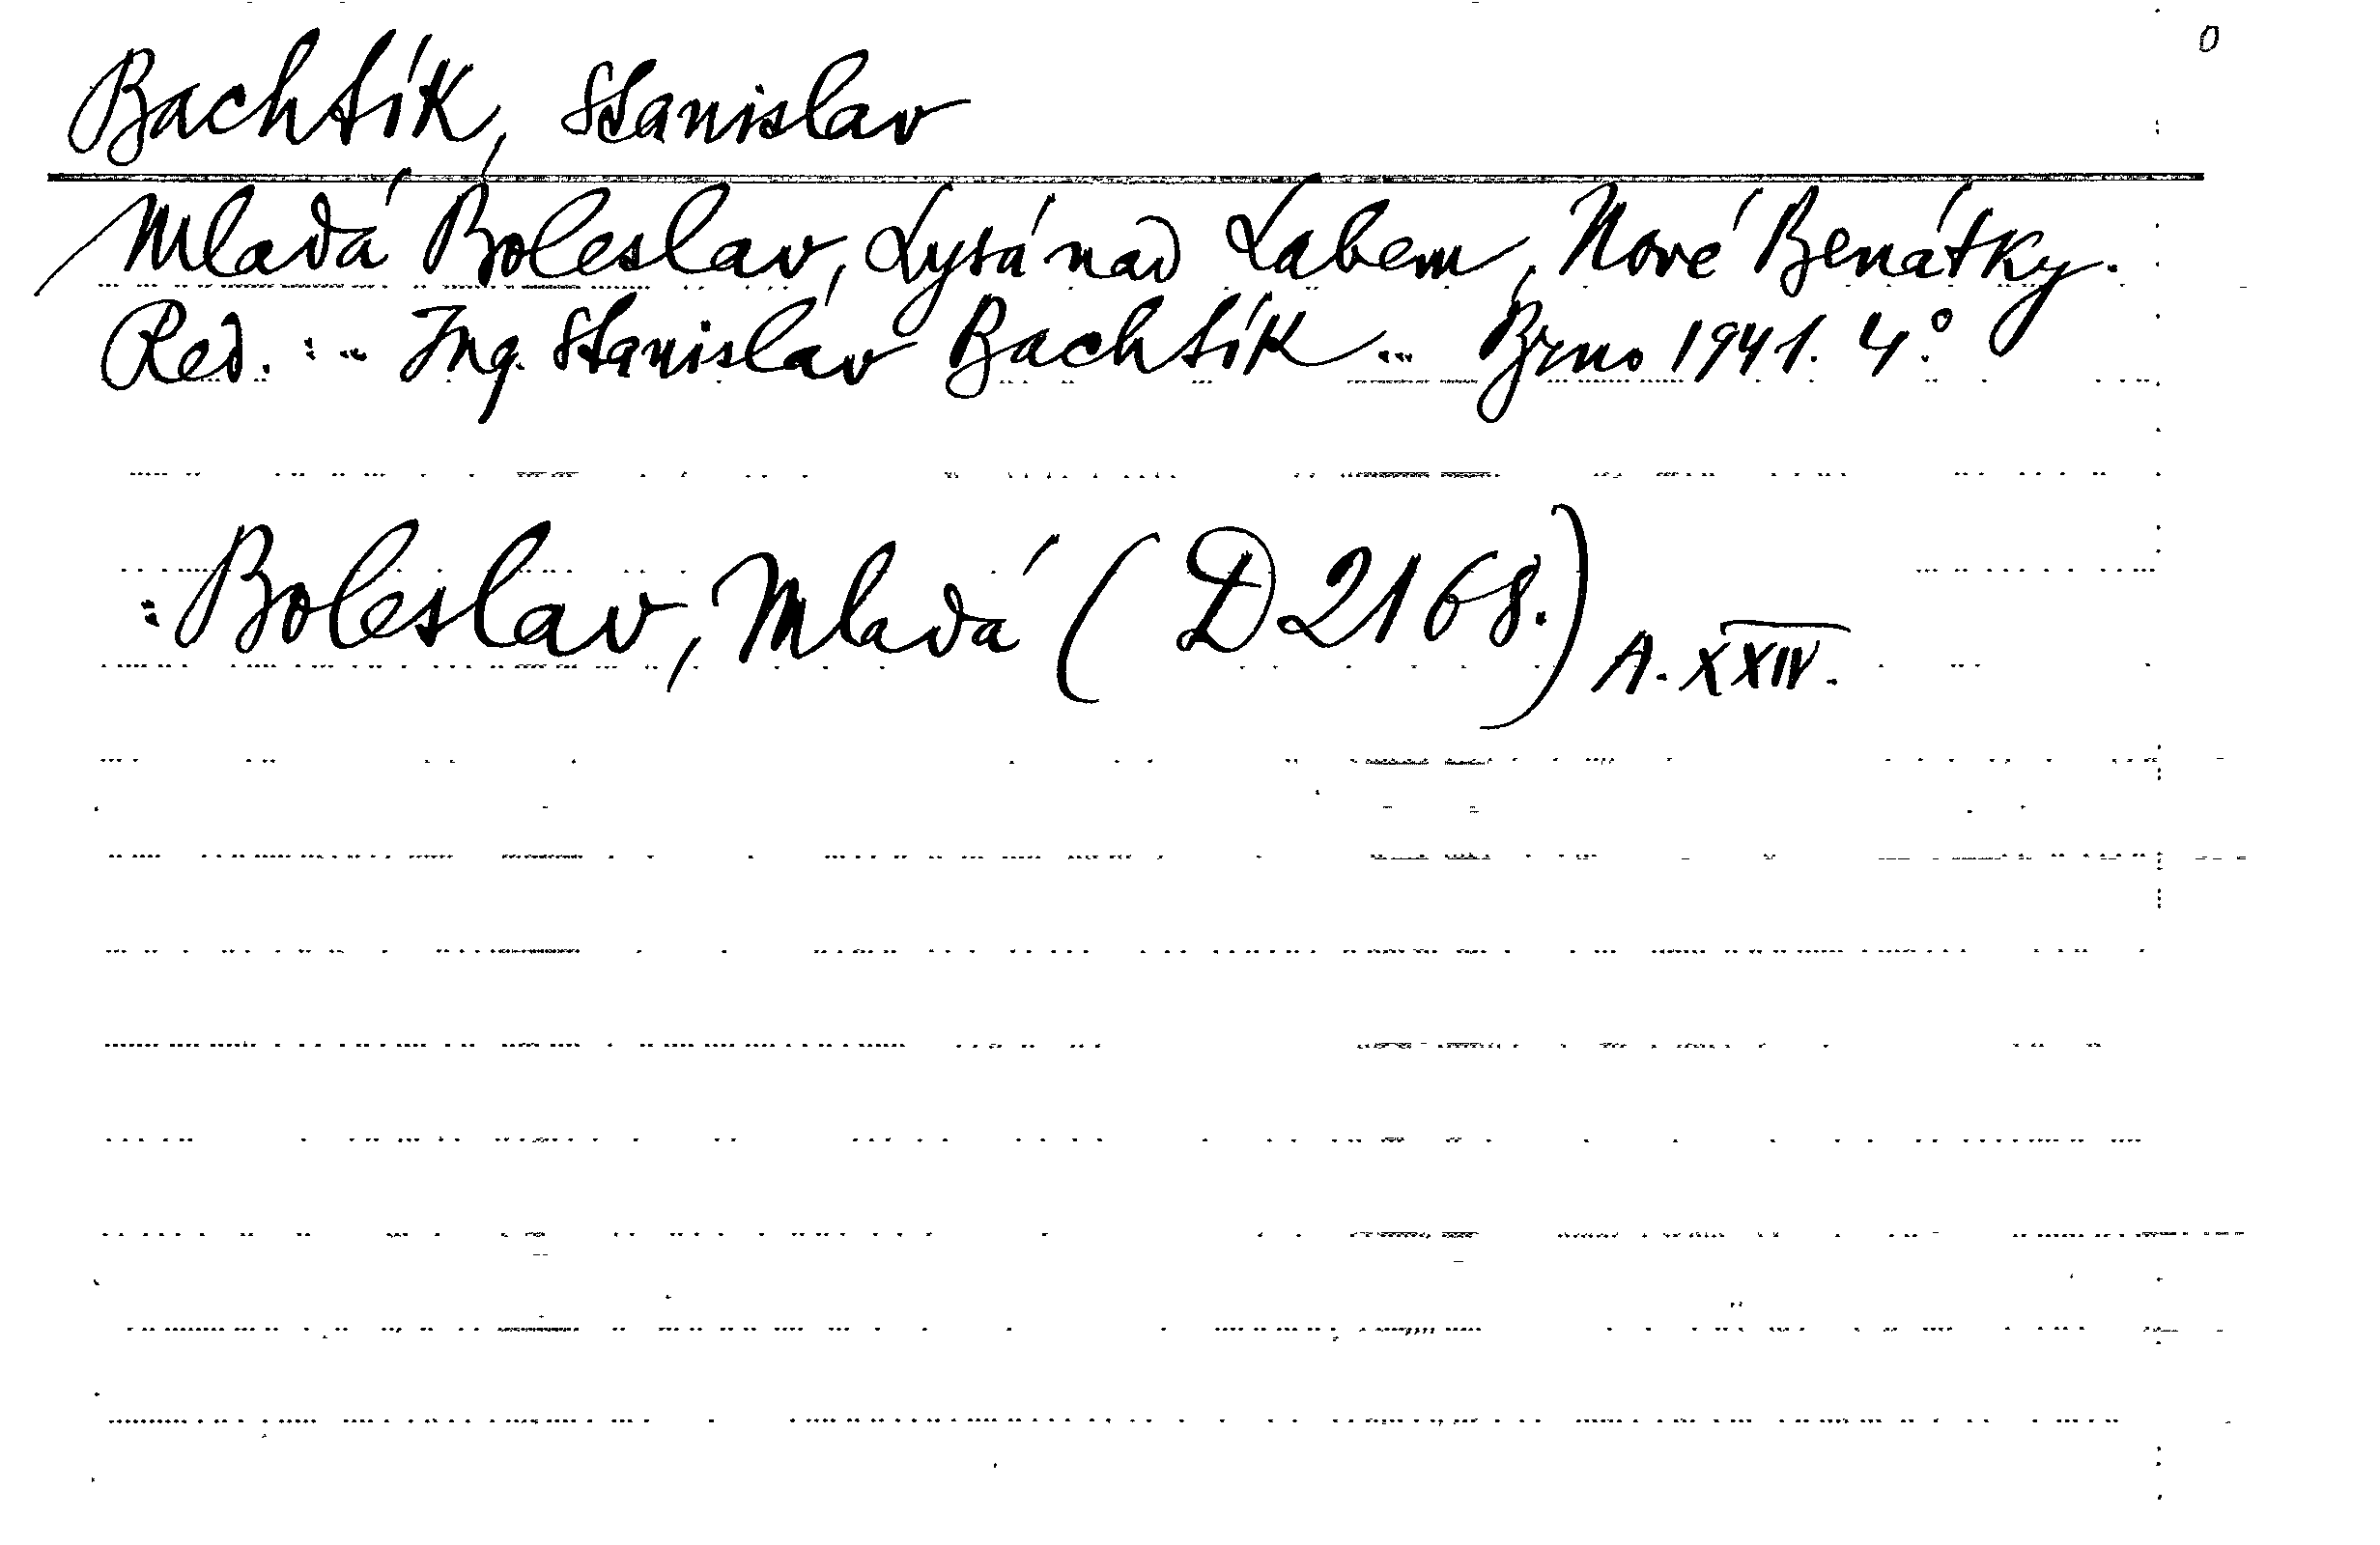 0
Bachtík, Stanislav
Mladá Boleslav, Lysá nad Labem, Nové Benátky.
Red. : ... Ing. Stanislav Bachtík ... Brno 1941. 4°.
: Boleslav, Mladá (D 2168.) A. XXIV.